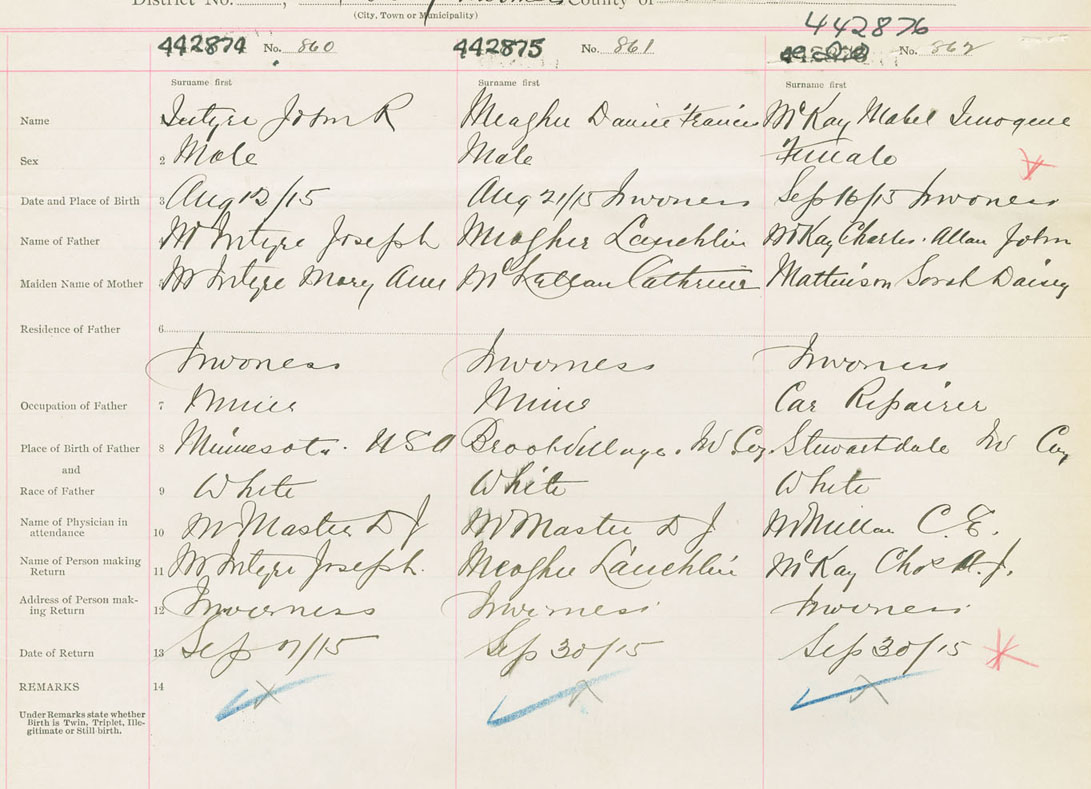 District No. , County of
(City, Town or Municipality)
442876
442874 No. 860 442875 No. 861 No. 862
Surname first Surname first Surname first
Name Intyre John R Meagher Daniel Francis McKay Mabel Imogene
Sex 2 Male Male Female
Date and Place of Birth 3 Aug 12/15 Aug 21/15 Inverness Sep 16/15 Inverness
Name of Father McIntyre Joseph Meagher Lauchlin McKay Charles Allan John
Maiden Name of Mother McIntyre Mary Ann McLellan Cathrine Mattinson Sarah Daisey
Residence of Father 6
Inverness Inverness Inverness
Occupation of Father 7 Miner Miner Car Repairer
Place of Birth of Father 8 Minnesota. USA Brook Village. In Coy. Stewartdale In Coy
and
Race of Father 9 White White White
Name of Physician in
attendance 10 McMaster D J McMaster D J McMillan C.E.
Name of Person making
Return 11 McIntyre Joseph. Meagher Lauchlin McKay Chas A.J.
Address of Person mak-
ing Return 12 Inverness Inverness Inverness
Date of Return 13 Sep /15 Sep 30/15 Sep 30/15
REMARKS 14
Under Remarks state whether
Birth is Twin, Triplet, Ille-
gitimate or Still birth.